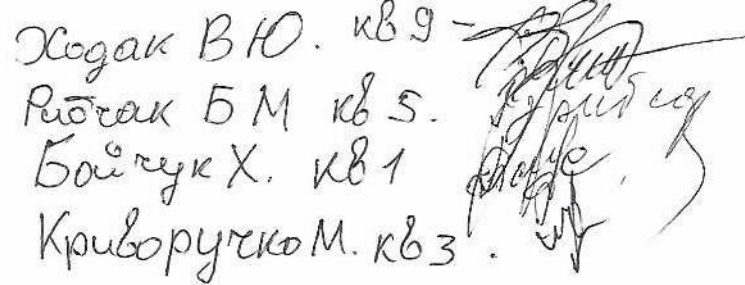 Ходак В Ю. кв 9 -
Рибчак Б М кв 5.
Бойчук Х. кв 1
Криворучко М. кв 3.